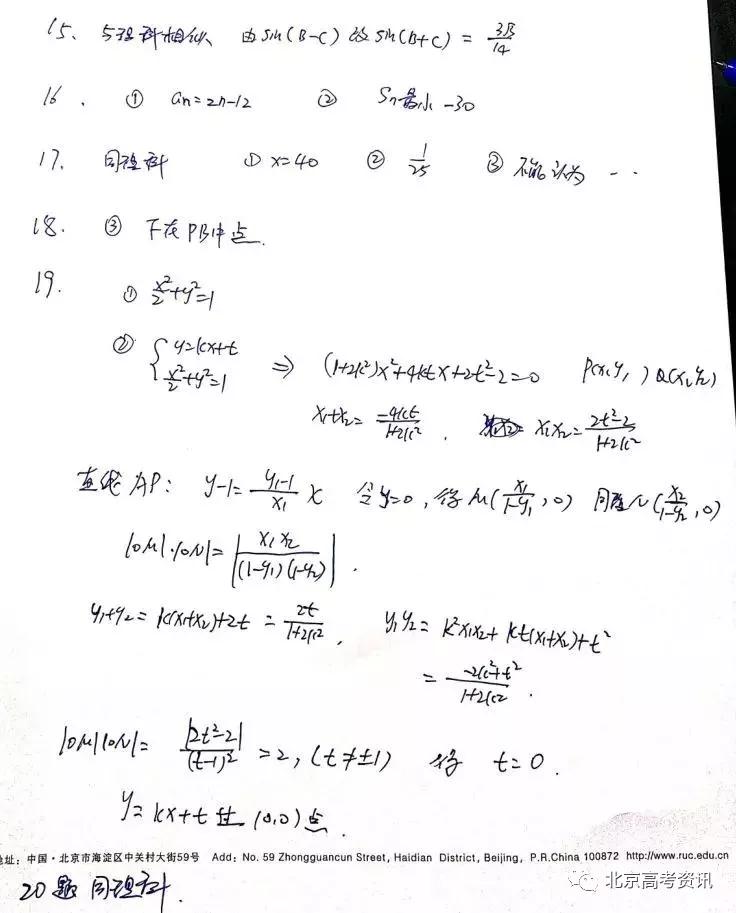 15、与理科相似、由sin(B-C)改sin(B+C) = 3√3/14
16. ① an=2n-12 ② Sn最小 -30
17. 同理科 ① x=40 ② 1/25 ③ 不能认为 ··
18. ③ F在PB中点.
19. ① x²/2+y²=1
② { y=kx+t
x²/2+y²=1 ⇒ (1+2k²)x²+4ktx+2t²-2=0 P(x₁y₁) Q(x₂y₂)
x₁+x₂= -4kt/1+2k² . x₁x₂= 2t²-2/1+2k²
直线AP: y-1= y₁-1/x₁ x 令y=0, 得M(x₁/1-y₁,0) 同理N(x₂/1-y₂,0)
|OM|·|ON|= |x₁x₂/(1-y₁)(1-y₂)| .
y₁+y₂= k(x₁+x₂)+2t = 2t/1+2k² , y₁y₂= k²x₁x₂+kt(x₁+x₂)+t²
= -2k²+t²/1+2k² .
|OM||ON|= |2t²-2|/(t-1)² =2, (t≠±1) 得 t=0.
y=kx+t 过 (0,0)点.
地址：中国·北京市海淀区中关村大街59号 Add: No. 59 Zhongguancun Street, Haidian District, Beijing, P.R.China 100872 http://www.ruc.edu.cn
20题 同理科.
北京高考资讯